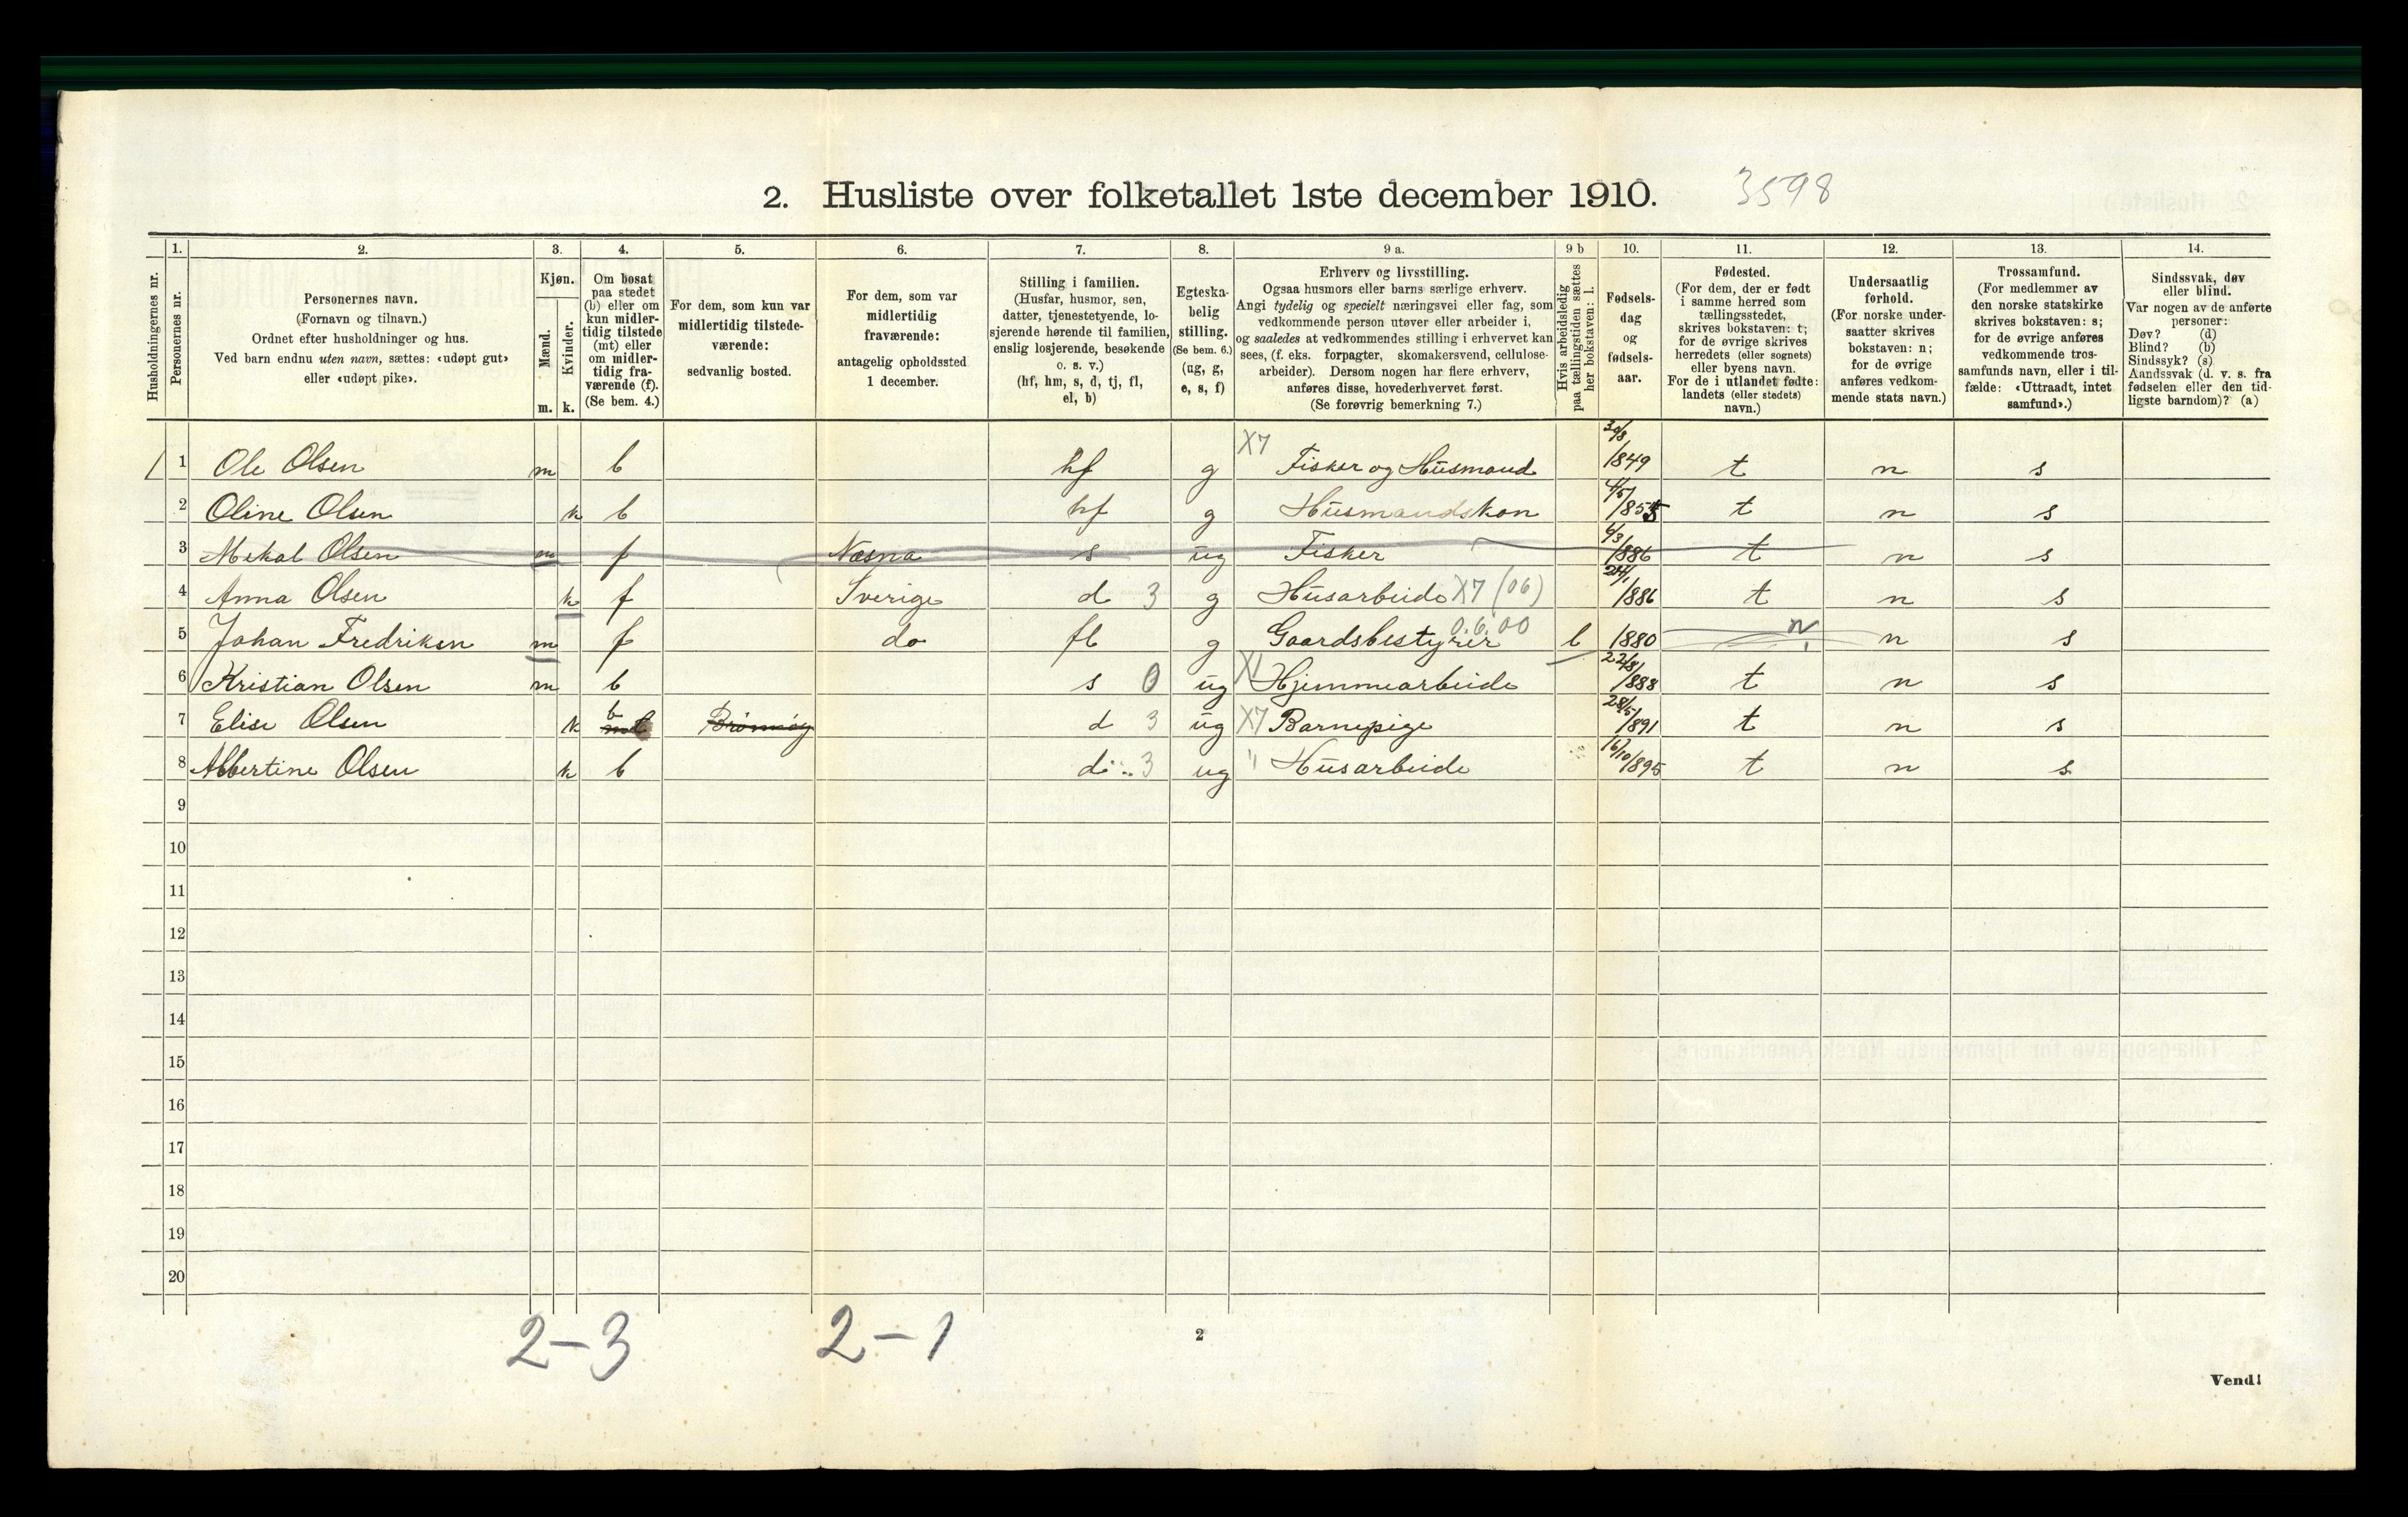 2. Husliste over folketallet 1ste december 1910. 3598
Husholdningernes nr.
1. 2. 3. 4. 5. 6. 7. 8. 9 a. 9 b 10. 11. 12. 13. 14.
Personernes nr.
Personernes navn.
(Fornavn og tilnavn.)
Ordnet efter husholdninger og hus.
Ved barn endnu uten navn, sættes: «udøpt gut»
eller «udøpt pike».
Kjøn.
Mænd.
Kvinder.
m. k.
Om bosat
paa stedet
(b) eller om
kun midler-
tidig tilstede
(mt) eller
om midler-
tidig fra-
værende (f).
(Se bem. 4.)
For dem, som kun var
midlertidig tilstede-
værende:
sedvanlig bosted.
For dem, som var
midlertidig
fraværende:
antagelig opholdssted
1 december.
Stilling i familien.
(Husfar, husmor, søn,
datter, tjenestetyende, lo-
sjerende hørende til familien,
enslig losjerende, besøkende
o. s. v.)
(hf, hm, s, d, tj, fl,
el, b)
Egteska-
belig
stilling.
(Se bem. 6.)
(ug, g,
e, s, f)
Erhverv og livsstilling.
Ogsaa husmors eller barns særlige erhverv.
Angi tydelig og specielt næringsvei eller fag, som
vedkommende person utøver eller arbeider i,
og saaledes at vedkommendes stilling i erhvervet kan
sees, (f. eks. forpagter, skomakersvend, cellulose-
arbeider). Dersom nogen har flere erhverv,
anføres disse, hovederhvervet først.
(Se forøvrig bemerkning 7.)
Hvis arbeidsledig
paa tællingstiden sættes
her bokstaven: l.
Fødsels-
dag
og
fødsels-
aar.
Fødested.
(For dem, der er født
i samme herred som
tællingsstedet,
skrives bokstaven: t;
for de øvrige skrives
herredets (eller sognets)
eller byens navn.
For de i utlandet fødte:
landets (eller stedets)
navn.)
Undersaatlig
forhold.
(For norske under-
saatter skrives
bokstaven: n;
for de øvrige
anføres vedkom-
mende stats navn.)
Trossamfund.
(For medlemmer av
den norske statskirke
skrives bokstaven: s;
for de øvrige anføres
vedkommende tros-
samfunds navn, eller i til-
fælde: «Uttraadt, intet
samfund».)
Sindssvak, døv
eller blind.
Var nogen av de anførte
personer:
Døv? (d)
Blind? (b)
Sindssyk? (s)
Aandssvak (d. v. s. fra
fødselen eller den tid-
ligste barndom)? (a)
1 Ole Olsen m b hf g X7 Fisker og Husmand 30/8 1849 t n s
2 Oline Olsen k b hf g Husmandskon 4/5 1855 t n s
3 Mekal Olsen m f Næsna s ug Fisker 6/3 1886 t n s
4 Anna Olsen k f Sverige d 3 g Husarbeide X7 (06) 24/1 1886 t n s
5 Johan Fredriksen m f do fl g Gaardsbestyrer 0.6.00 l 1880 n n s
6 Kristian Olsen m b s 0 ug X1 Hjemmearbeide 22/8 1888 t n s
7 Elise Olsen k b mt Brönnöy d 3 ug X7 Barnepige 28/5 1891 t n s
8 Albertine Olsen k b d 3 ug " Husarbeide 16/10 1895 t n s
9
10
11
12
13
14
15
16
17
18
19
20
2-3 2-1 2
Vend!